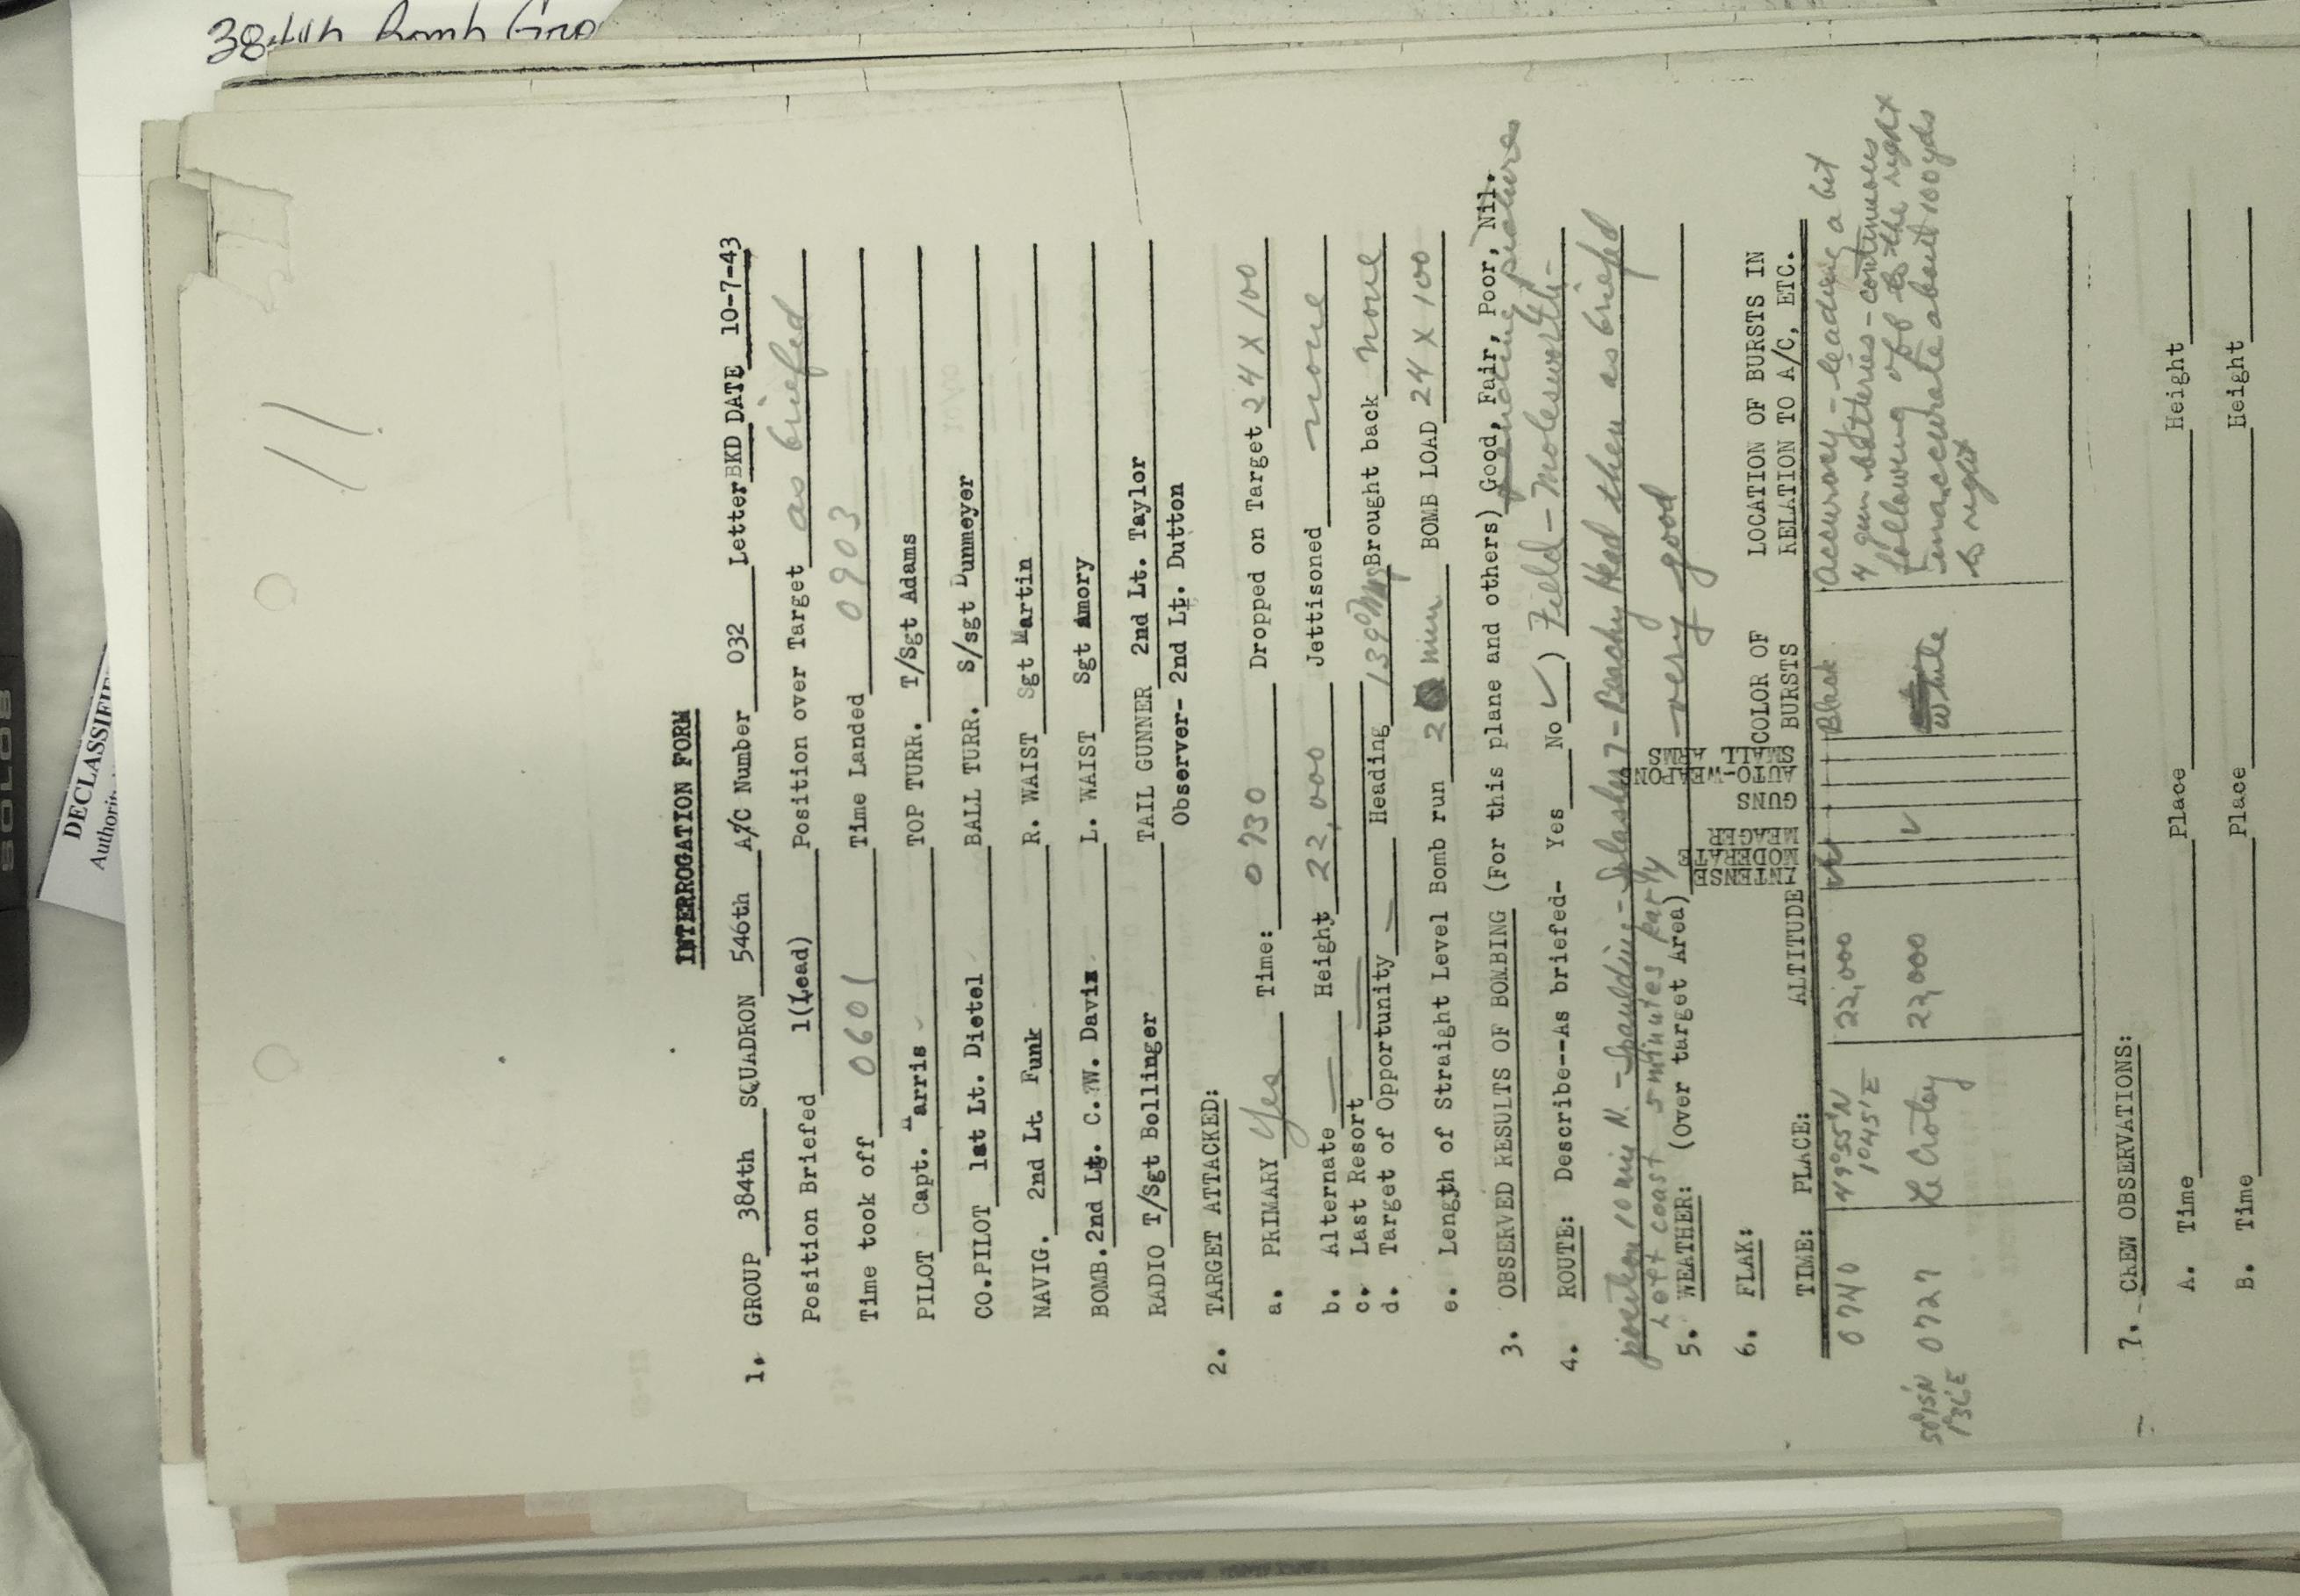 384th Bomb Gro
DECLASSIFIE
Authorit
SOLO8
11
INTERROGATION FORM
1. GROUP 384th SQUADRON 546th A/C Number 032 Letter BKD DATE 10-7-43
Position Briefed 1(Lead) Position over Target as briefed
Time took off 0601 Time Landed 0903
PILOT Capt. Harris TOP TURR. T/Sgt Adams
CO.PILOT 1st Lt. Dietel BALL TURR. S/sgt Dunmeyer
NAVIG. 2nd Lt. Funk R. WAIST Sgt Martin
BOMB. 2nd Lt. C.W. Davis L. WAIST Sgt Amory
RADIO T/Sgt Bollinger TAIL GUNNER 2nd Lt. Taylor
Observer- 2nd Lt. Dutton
2. TARGET ATTACKED:
a. PRIMARY Yes Time: 0730 Dropped on Target 24 X 100
b. Alternate — Height 22,000 Jettisoned none
c. Last Resort —
d. Target of Opportunity — Heading 139° Mag Brought back none
e. Length of Straight Level Bomb run 2 min BOMB LOAD 24 X 100
3. OBSERVED RESULTS OF BOMBING (For this plane and others) Good, Fair, Poor, Nil.
pending pictures
4. ROUTE: Describe--As briefed- Yes No ✓) Field - Molesworth -
position 10 min N. - Spaulding - Splasher 7 - Beachy Head then as briefed
Left coast 5 minutes early
5. WEATHER: (Over target Area) very good
6. FLAK:
TIME: PLACE: ALTITUDE INTENSE MODERATE MEAGER GUNS AUTO-WEAPON SMALL ARMS COLOR OF BURSTS LOCATION OF BURSTS IN RELATION TO A/C, ETC.
0740 49°55'N 1°45'E 22,000 ✓ Black accuracy - leading a bit
4 gun batteries - continuous
following off to the right
50°15'N 1°36'E 0727 Le Crotoy 22,000 ✓ white inaccurate about 100 yds
to right
7. CREW OBSERVATIONS:
A. Time Place Height
B. Time Place Height